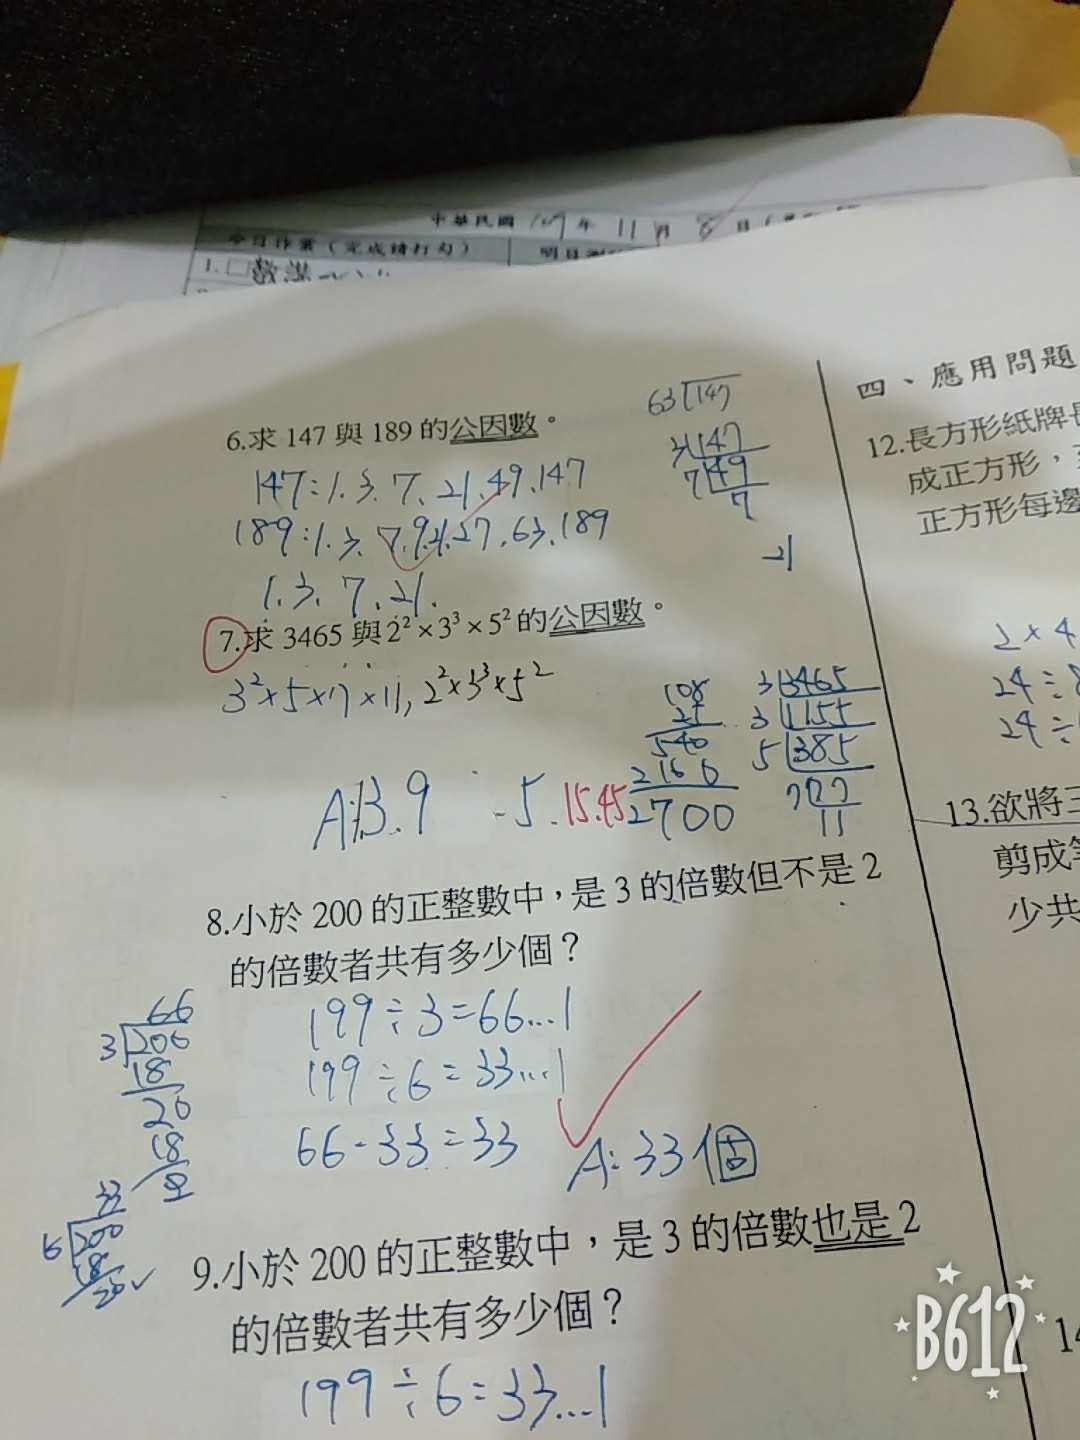 中華民國 109 年 11 月 8 日
今日作業（完成請打勾）
1. □數課
四、應用問題
6.求 147 與 189 的公因數。
147:1.3.7.21.49.147
189:1.3.7.9.21.27.63.189
1.3.7.21.
63 147
3 147
7 49
7
21
7.求 3465 與 2²×3³×5² 的公因數。
3²×5×7×11, 2²×3³×5²
108
25
540
2160
2700
3 3465
3 1155
5 385
7 77
11
A:1.3.9 .5.15.45
8.小於 200 的正整數中，是 3 的倍數但不是 2
的倍數者共有多少個？
199÷3=66...1
199÷6=33...1
66-33=33
A:33個
66
3 200
18
20
18
2
33
6 200
18
20
9.小於 200 的正整數中，是 3 的倍數也是 2
的倍數者共有多少個？
199÷6=33...1
12.長方形紙牌
成正方形，
正方形每邊
2×4
24÷8
24÷
13.欲將三
剪成
少共
14
B612